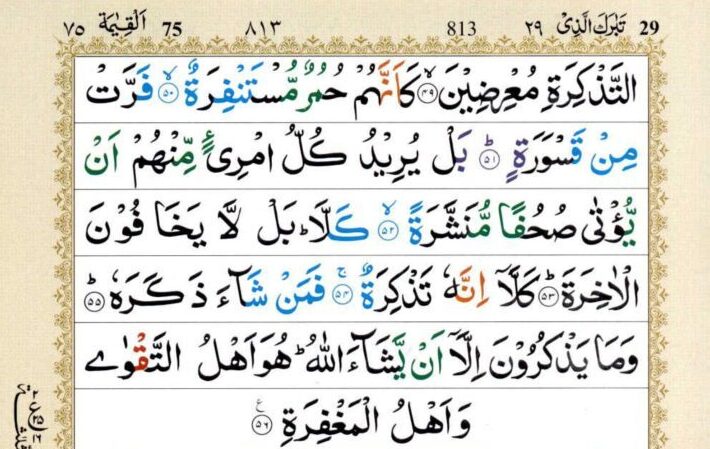 29 تَبٰرَكَ الَّذِىْ ٢٩ 813 ٨١٣ 75 اَلْقِيٰمَة ٧٥
التَّذْكِرَةِ مُعْرِضِيْنَ ۙ﴿۴۹﴾ كَاَنَّهُمْ حُمُرٌ مُّسْتَنْفِرَةٌ ۙ﴿۵۰﴾ فَرَّتْ
مِنْ قَسْوَرَةٍ ؕ﴿۵۱﴾ بَلْ يُرِيْدُ كُلُّ امْرِئٍ مِّنْهُمْ اَنْ
يُّؤْتٰى صُحُفًا مُّنَشَّرَةً ۙ﴿۵۲﴾ كَلَّا ؕ بَلْ لَّا يَخَافُوْنَ
الْاٰخِرَةَ ؕ﴿۵۳﴾ كَلَّاۤ اِنَّهٗ تَذْكِرَةٌ ۚ﴿۵۴﴾ فَمَنْ شَآءَ ذَكَرَهٗ ؕ﴿۵۵﴾
وَمَا يَذْكُرُوْنَ اِلَّاۤ اَنْ يَّشَآءَ اللّٰهُ ؕ هُوَ اَهْلُ التَّقْوٰى
وَاَهْلُ الْمَغْفِرَةِ ﴿۵۶﴾